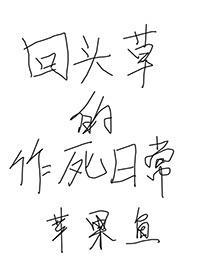 回头草
的
作死日常
苹果鱼